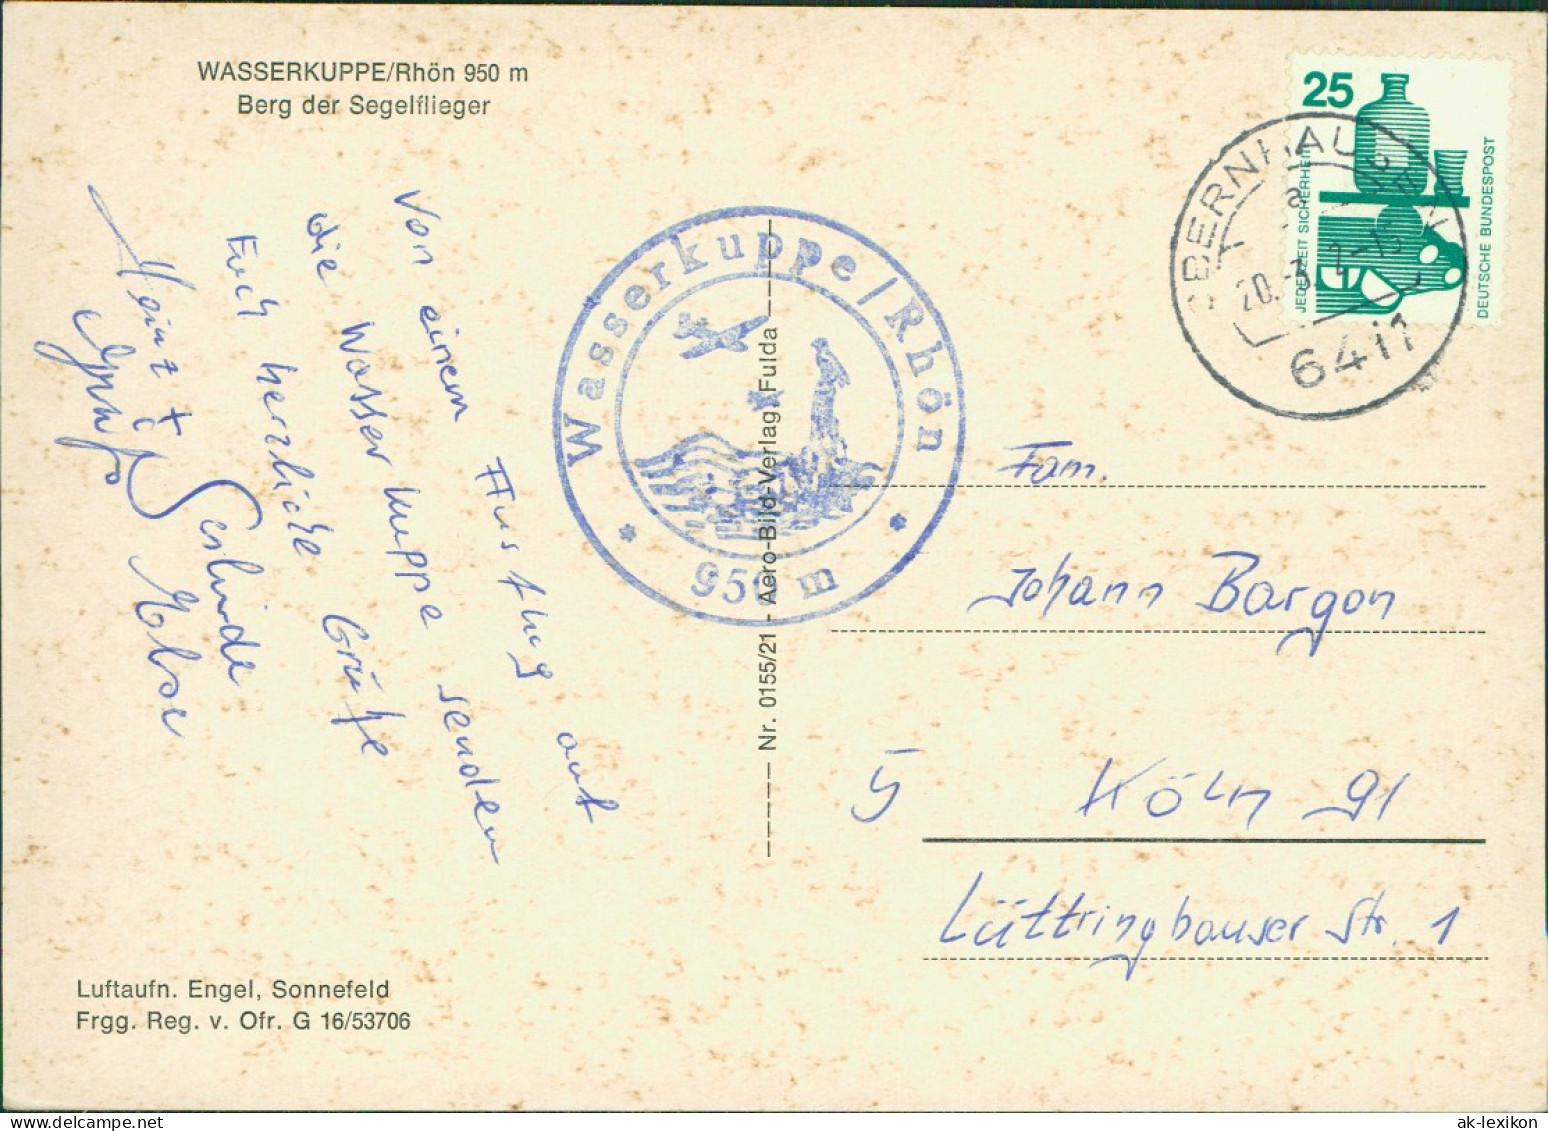 WASSERKUPPE/Rhön 950 m
Berg der Segelflieger
Von einem Ausflug auf
die Wasserkuppe senden
Euch herzliche Grüße
Gerlinde
Heinz + Else
Wasserkuppe/Rhön
* 950 m *
Nr. 0155/21 - Aero-Bild-Verlag, Fulda
25
JEDERZEIT SICHERHEIT
DEUTSCHE BUNDESPOST
a
20.-3.
2-15
6417
Fam.
Johann Bargon
5 Köln 91
Lüttringhauser Str. 1
Luftaufn. Engel, Sonnefeld
Frgg. Reg. v. Ofr. G 16/53706
ak-lexikon